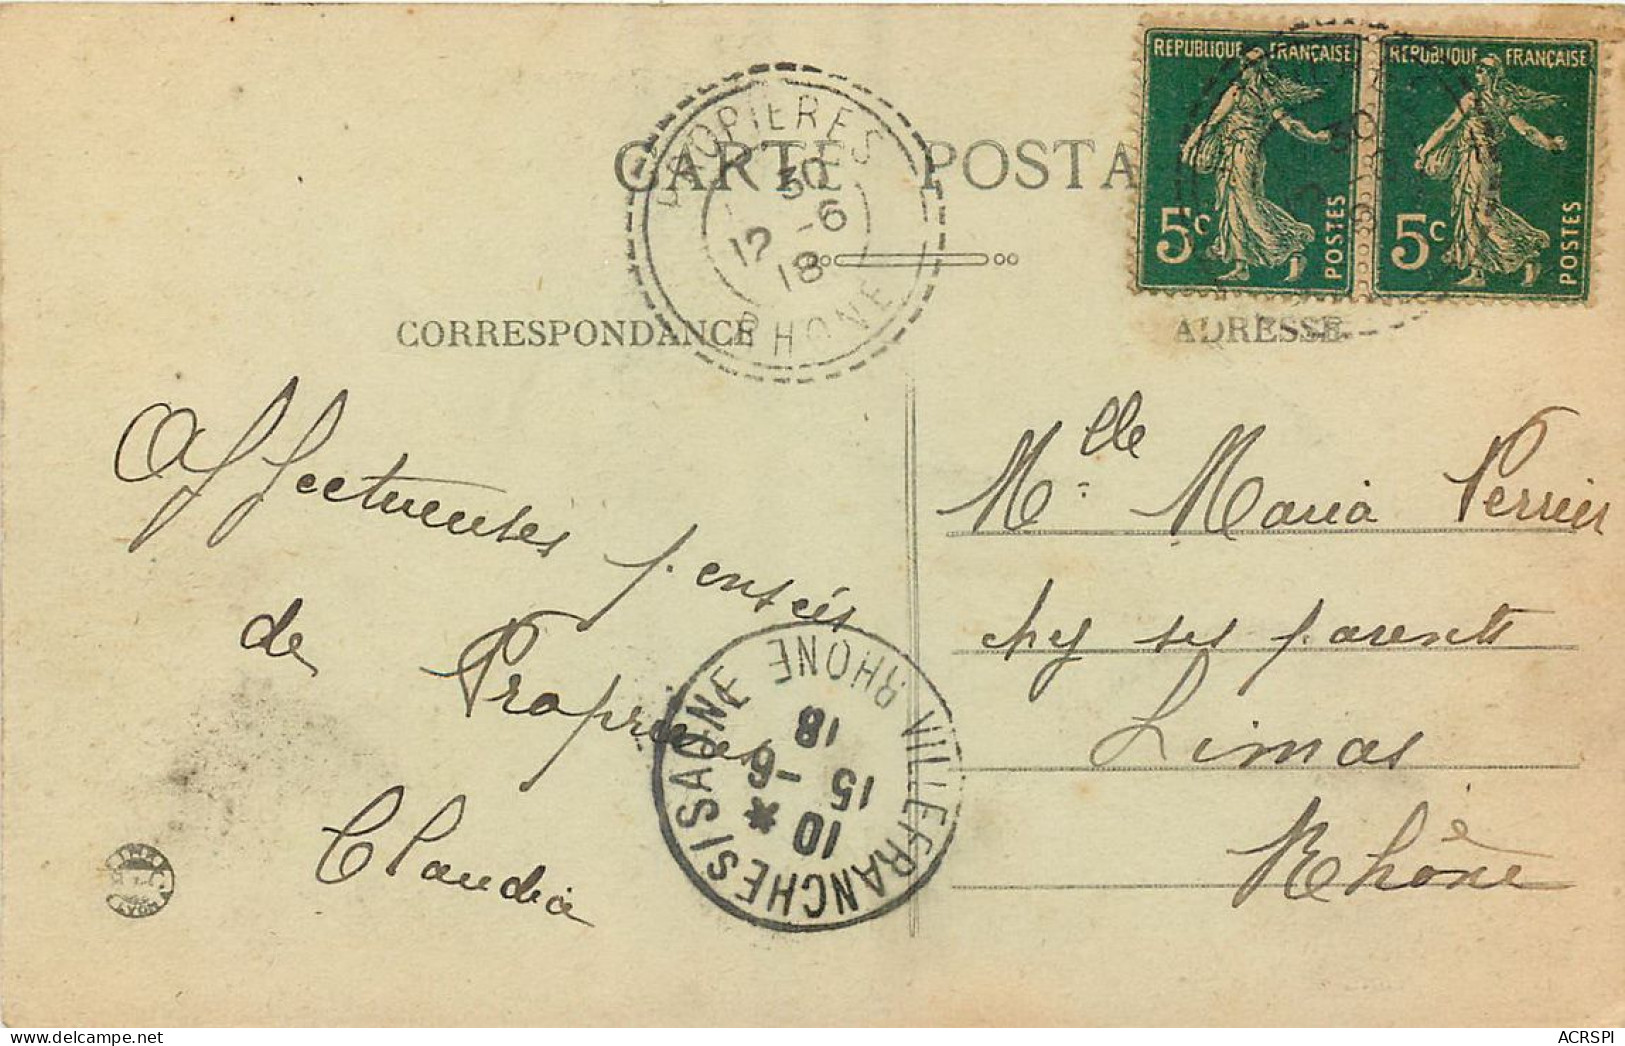 CARTE POSTA
REPUBLIQUE FRANÇAISE
5c
POSTES
REPUBLIQUE FRANÇAISE
5c
POSTES
PROPIERES
30
12 -6
18
RHONE
CORRESPONDANCE
ADRESSE
Affectueuses pensées
de Propières
Claudia
Mlle Maria Perrier
chez ses parents
Limas
Rhône
VILLEFRANCHE S/ SAONE RHONE
10 *
15 -6
18
delcampe.net
ACRSPI